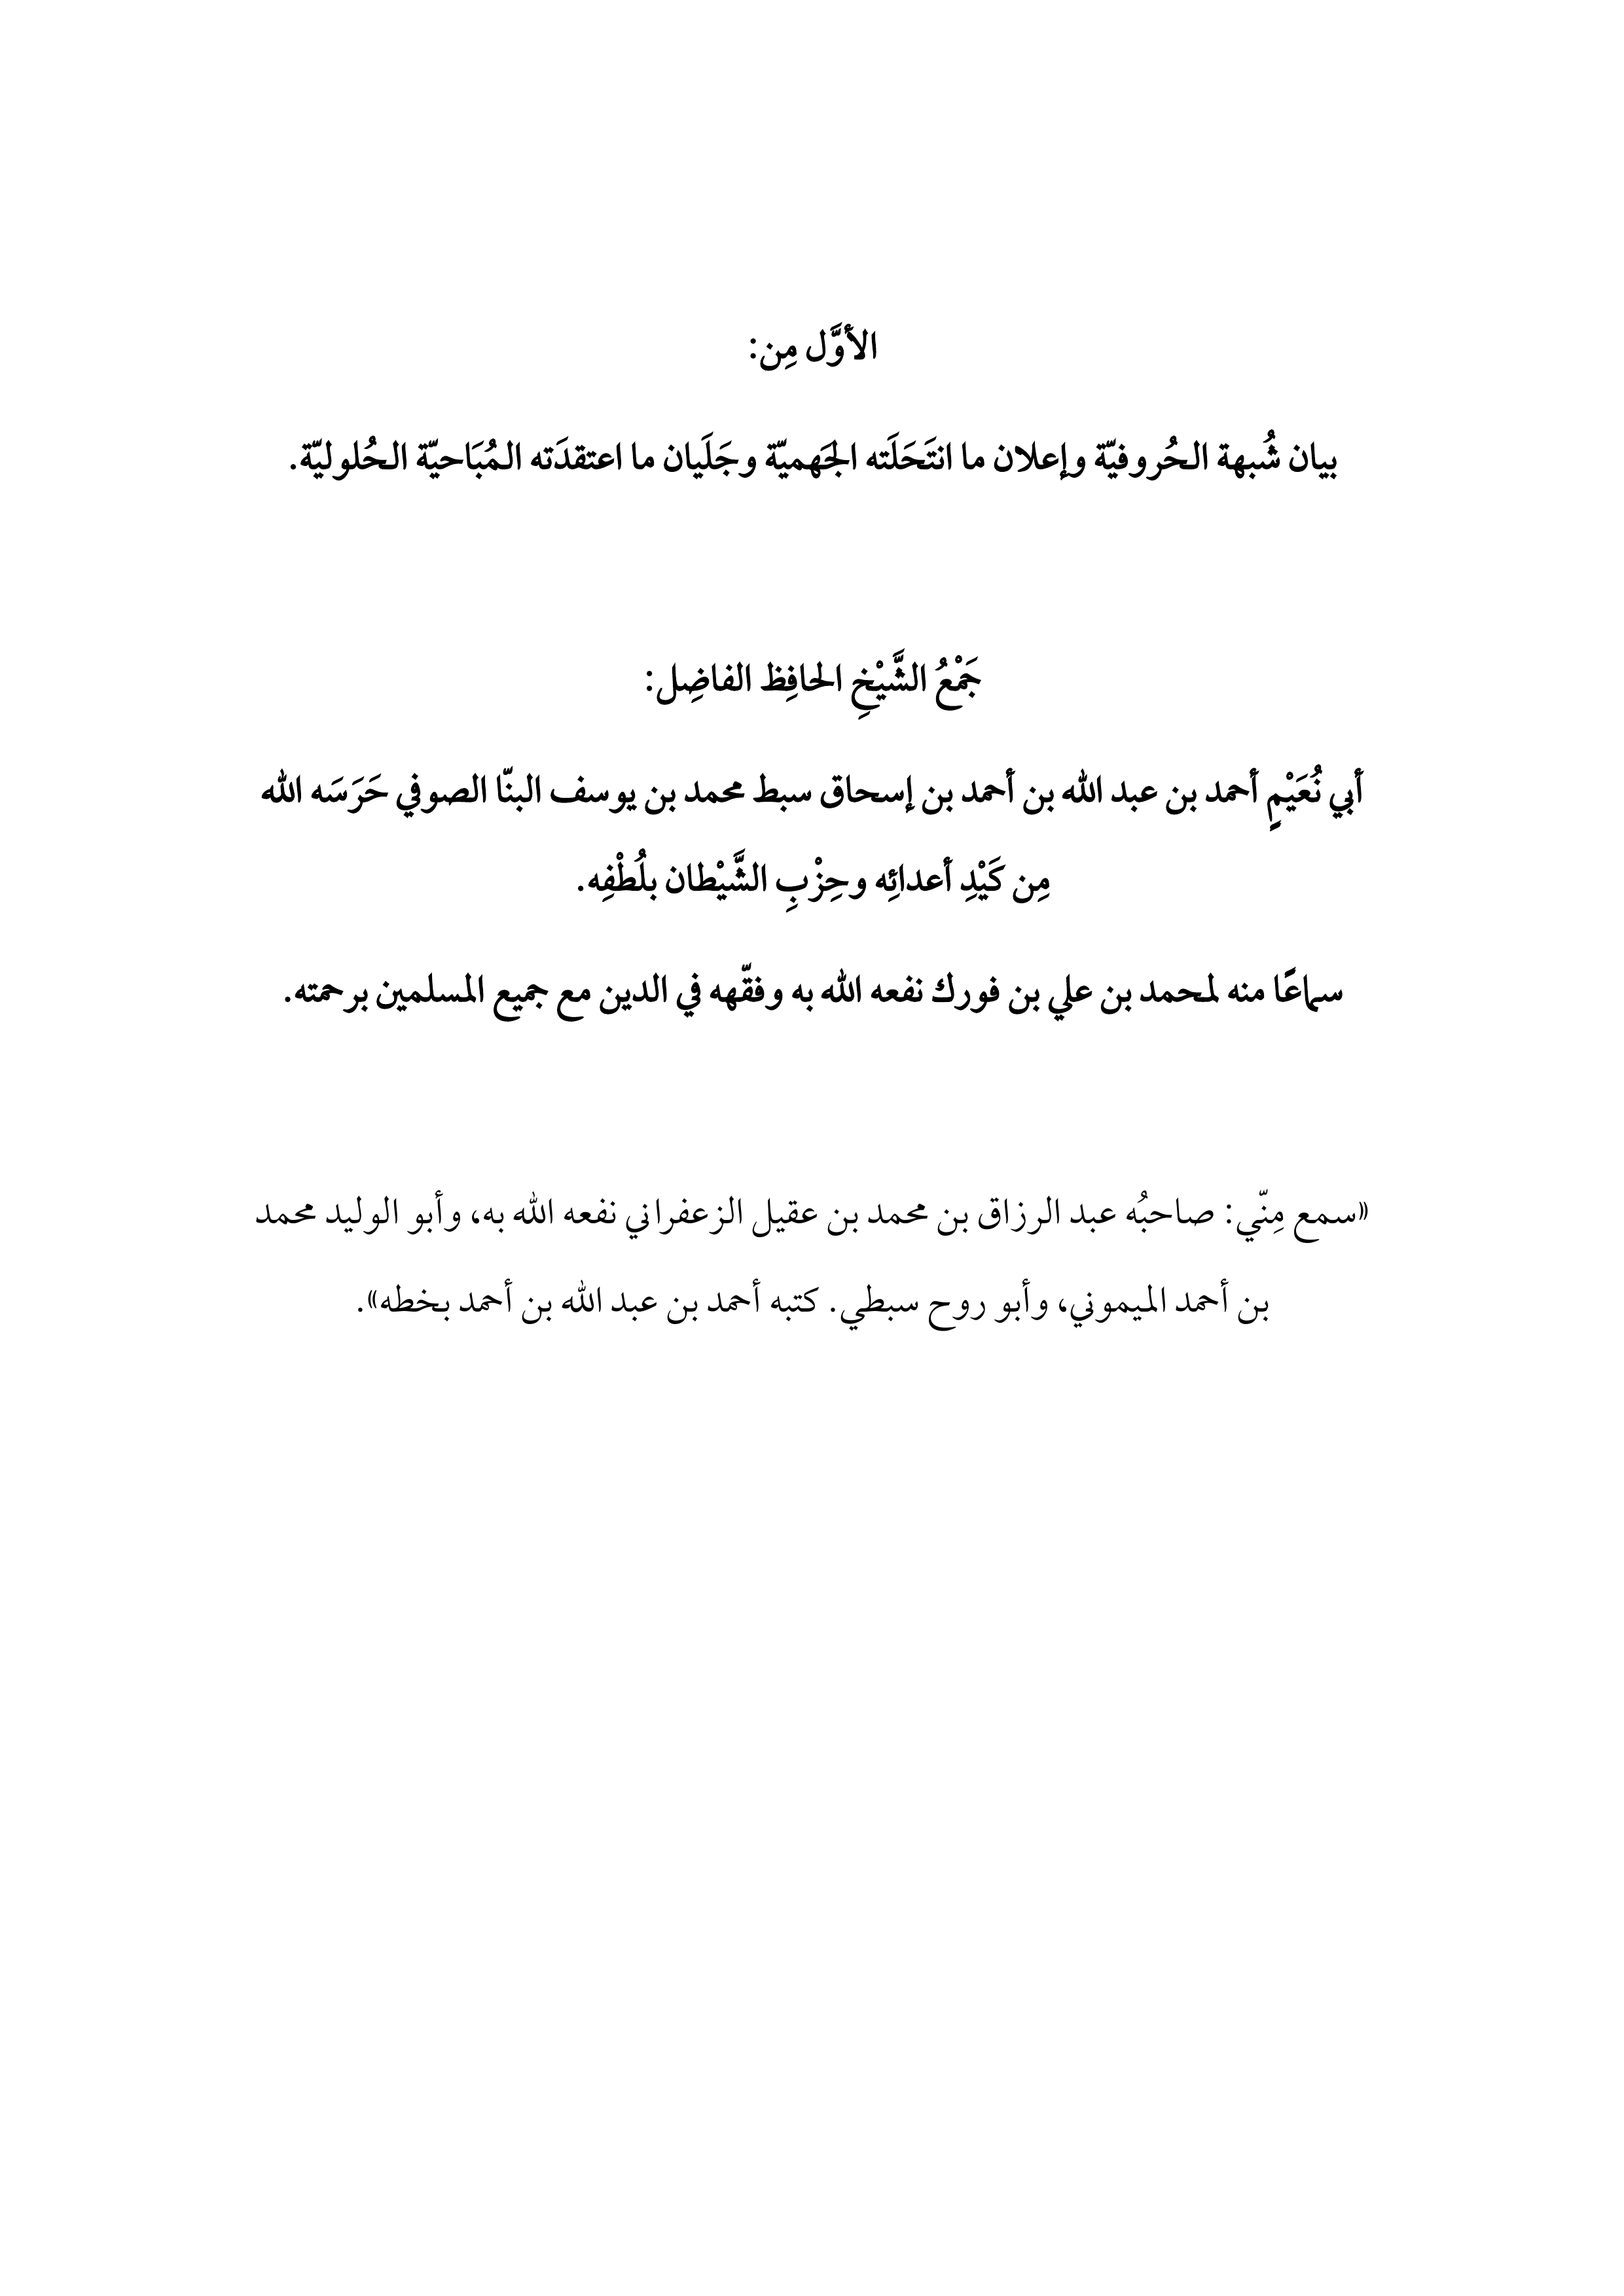 الأوَّل مِن:
بيان شُبهة الحُروفيّة وإعلان ما انتَحَلَته الجَهميّة وجَلَيان ما اعتقدَته المُبَاحيّة الحُلوليّة.
جَمْعُ الشَّيْخِ الحافِظ الفاضِل:
أبي نُعَيْمٍ أحمد بن عبد الله بن أحمد بن إسحاق سبط محمد بن يوسف البنّا الصوفي حَرَسَه الله
مِن كَيْدِ أعدائِه وحِزْبِ الشَّيْطان بلُطْفِه.
سماعًا منه لمحمد بن علي بن فورك نفعه الله به وفقّهه في الدين مع جميع المسلمين برحمته.
«سمع مِنّي: صاحبُه عبد الرزاق بن محمد بن عقيل الزعفراني نفعه الله به، وأبو الوليد محمد
بن أحمد الميموني، وأبو روح سبطي. كتبه أحمد بن عبد الله بن أحمد بخطه».